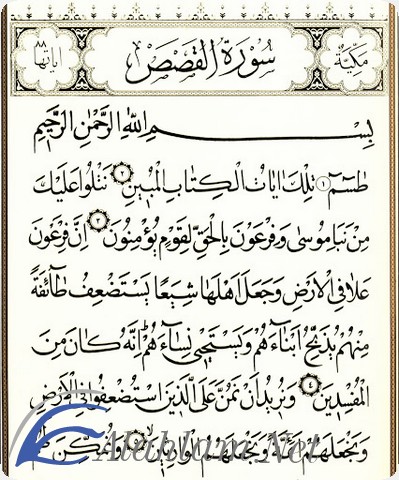 مكية
سورة القصص
اياتها ٨٨
بسم الله الرحمن الرحيم
طسم ١ تلك ايات الكتاب المبين ٢ نتلوا عليك
من نبا موسى وفرعون بالحق لقوم يؤمنون ٣ ان فرعون
علا في الارض وجعل اهلها شيعا يستضعف طائفة
منهم يذبح ابناءهم ويستحيي نساءهم انه كان من
المفسدين ٤ ونريد ان نمن على الذين استضعفوا في الارض
ونجعلهم ائمة ونجعلهم الوارثين ونمكن لهم